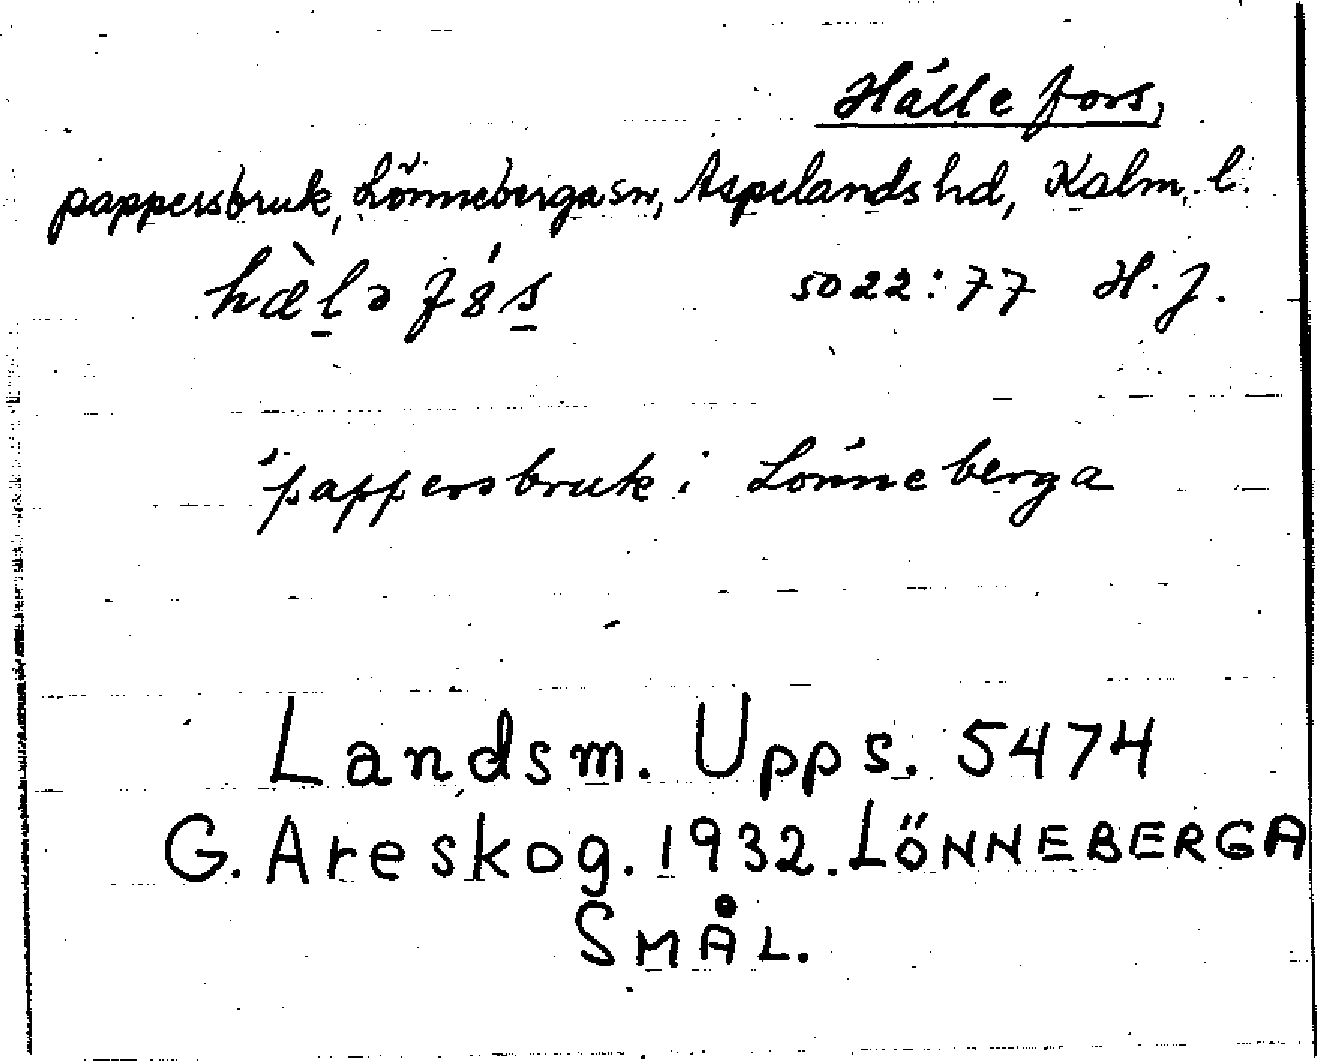 Hällefors,
pappersbruk, Lönneberga sn, Aspelands hd, Kalm. l.
5022:77 H.J.
pappersbruk i Lönneberga
Landsm. Upps. 5474
G. Areskog. 1932. LÖNNEBERGA
SMÅL.